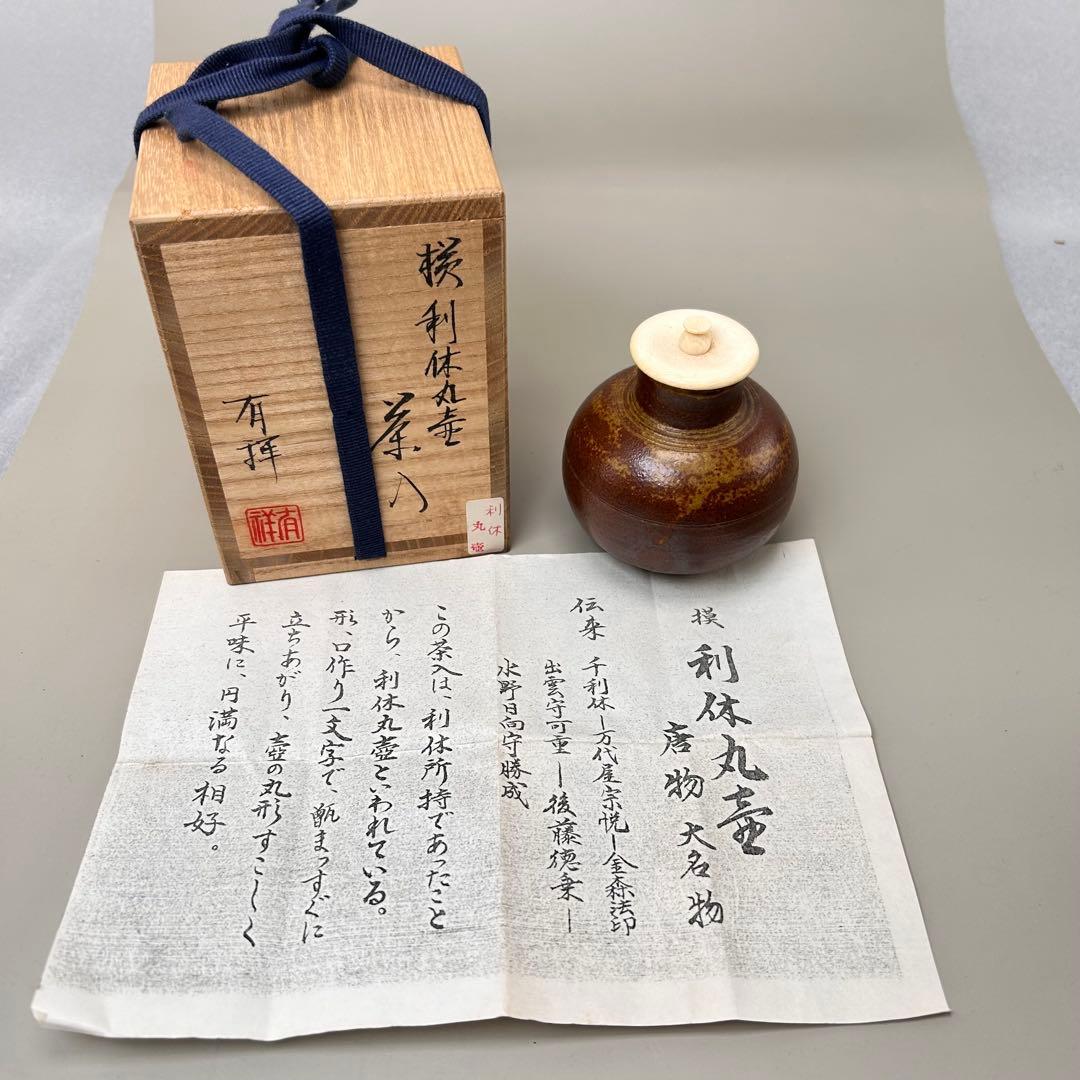 模利休丸壷
茶入
有拝
有祥
利休
丸壷
模
利休丸壷
唐物大名物
伝来 千利休ー万代屋宗悦ー金森法印
出雲守可重ー後藤徳乗ー
水野日向守勝成
この茶入は、利休所持であったこと
から、利休丸壷といわれている。
形、口作り一文字で、甑まっすぐに
立ちあがり、壷の丸形すこしく
平味に、円満なる相好。